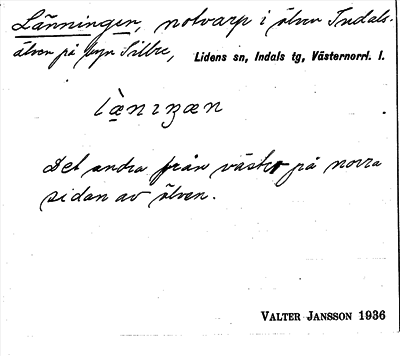 Länningen, notvarp i älven Indals-
älven på byn Sillre, Lidens sn, Indals tg, Västernorrl. l.
lä̀nıŋæn
Det andra från väster på norra
sidan av älven.
VALTER JANSSON 1936